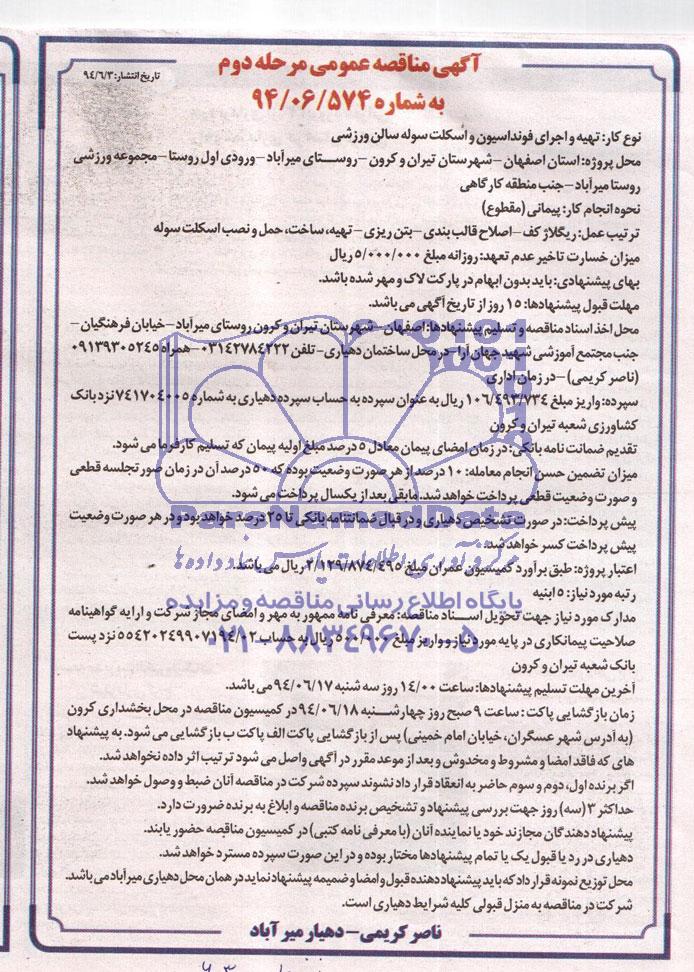 آگهی مناقصه عمومی مرحله دوم
تاریخ انتشار: ۹۴/۶/۳
به شماره ۹۴/۰۶/۵۷۴
نوع کار: تهیه و اجرای فونداسیون و اسکلت سوله سالن ورزشی
محل پروژه: استان اصفهان – شهرستان تیران و کرون – روستای میرآباد – ورودی اول روستا – مجموعه ورزشی
روستا میرآباد – جنب منطقه کارگاهی
نحوه انجام کار: پیمانی (مقطوع)
ترتیب عمل: ریگلاژ کف – اصلاح قالب بندی – بتن ریزی – تهیه، ساخت، حمل و نصب اسکلت سوله
میزان خسارت تاخیر عدم تعهد: روزانه مبلغ ۵/۰۰۰/۰۰۰ ریال
بهای پیشنهادی: باید بدون ابهام در پارکت لاک و مهر شده باشد.
مهلت قبول پیشنهادها: ۱۵ روز از تاریخ آگهی می باشد.
محل اخذ اسناد مناقصه و تسلیم پیشنهادها: اصفهان – شهرستان تیران و کرون روستای میرآباد – خیابان فرهنگیان –
جنب مجتمع آموزشی شهید جهان آرا – در محل ساختمان دهیاری – تلفن ۰۳۱۴۲۷۸۴۲۲۲ – همراه ۰۹۱۳۹۳۰۵۲۴۵
(ناصر کریمی) – در زمان اداری
سپرده: واریز مبلغ ۱۰۶/۴۹۳/۷۳۴ ریال به عنوان سپرده به حساب سپرده دهیاری به شماره ۷۴۱۷۰۴۰۰۵ نزد بانک
کشاورزی شعبه تیران و کرون
تقدیم ضمانت نامه بانکی: در زمان امضای پیمان معادل ۵ درصد مبلغ اولیه پیمان که تسلیم کارفرما می شود.
میزان تضمین حسن انجام معامله: ۱۰ درصد از هر صورت وضعیت بوده که ۵۰ درصد آن در زمان صورتجلسه قطعی
و صورت وضعیت قطعی پرداخت خواهد شد. مابقی بعد از یکسال پرداخت می شود.
پیش پرداخت: در صورت تشخیص دهیاری و در قبال ضمانتنامه بانکی تا ۲۵ درصد خواهد بود و در هر صورت وضعیت
پیش پرداخت کسر خواهد شد.
اعتبار پروژه: طبق برآورد کمیسیون عمران مبلغ ۲/۱۲۹/۸۷۴/۴۹۵ ریال می باشد.
رتبه مورد نیاز: ۵ ابنیه
مدارک مورد نیاز جهت تحویل اسناد مناقصه: معرفی نامه ممهور به مهر و امضای مجاز شرکت و ارایه گواهینامه
صلاحیت پیمانکاری در پایه مورد نیاز و واریز مبلغ ۵۰۰/۰۰۰ ریال به حساب ۵۵۴۲۰۲۴۹۹۰۷۱۹۴/۰۲ نزد پست
بانک شعبه تیران و کرون
آخرین مهلت تسلیم پیشنهادها: ساعت ۱۴/۰۰ روز سه شنبه ۹۴/۰۶/۱۷ می باشد.
زمان بازگشایی پاکت: ساعت ۹ صبح روز چهارشنبه ۹۴/۰۶/۱۸ در کمیسیون مناقصه در محل بخشداری کرون
(به آدرس شهر عسگران، خیابان امام خمینی) پس از بازگشایی پاکت الف پاکت ب بازگشایی می شود. به پیشنهاد
های که فاقد امضا و مشروط و مخدوش و بعد از موعد مقرر در آگهی واصل می شود ترتیب اثر داده نخواهد شد.
اگر برنده اول، دوم و سوم حاضر به انعقاد قرار داد نشوند سپرده شرکت در مناقصه آنان ضبط و وصول خواهد شد.
حداکثر ۳ (سه) روز جهت بررسی پیشنهاد و تشخیص برنده مناقصه و ابلاغ به برنده ضرورت دارد.
پیشنهاد دهندگان مجازند خود یا نماینده آنان (با معرفی نامه کتبی) در کمیسیون مناقصه حضور یابند.
دهیاری در رد یا قبول یک یا تمام پیشنهادها مختار بوده و در این صورت سپرده مسترد خواهد شد.
محل توزیع نمونه قرار داد که باید پیشنهاد دهنده قبول و امضا و ضمیمه پیشنهاد نماید در همان محل دهیاری میرآباد می باشد.
شرکت در مناقصه به منزل قبولی کلیه شرایط دهیاری است.
ناصر کریمی – دهیار میر آباد
ParsNamadData
مرکز فرآوری اطلاعات پارس نماد داده ها
پایگاه اطلاع رسانی مناقصه و مزایده
۰۲۱-۸۸۳۴۹۶۷۰-۵